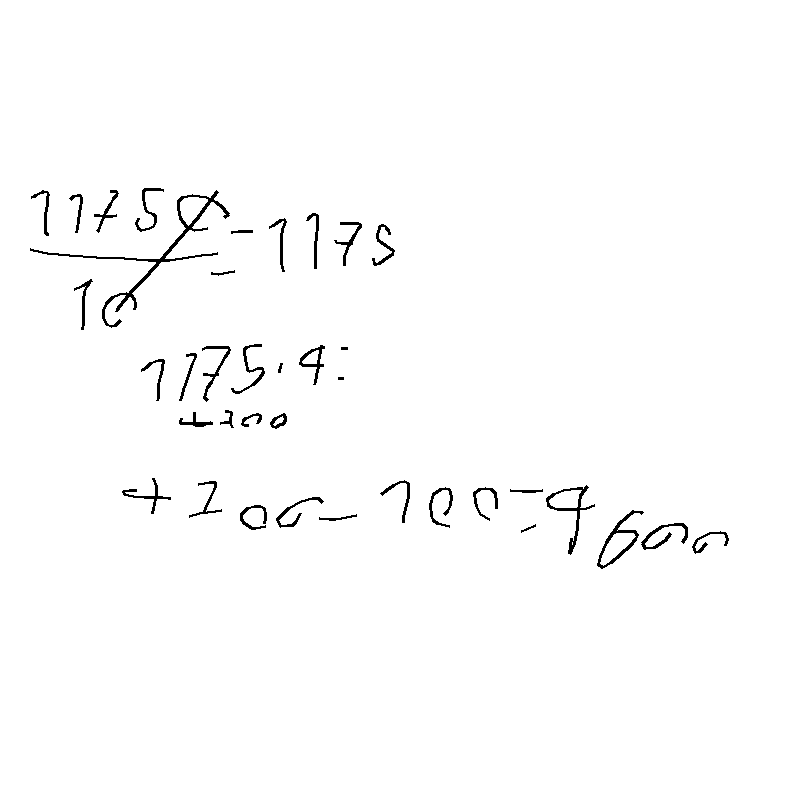 11750/10 = 1175
1175·4=
+200
+200-100=4600